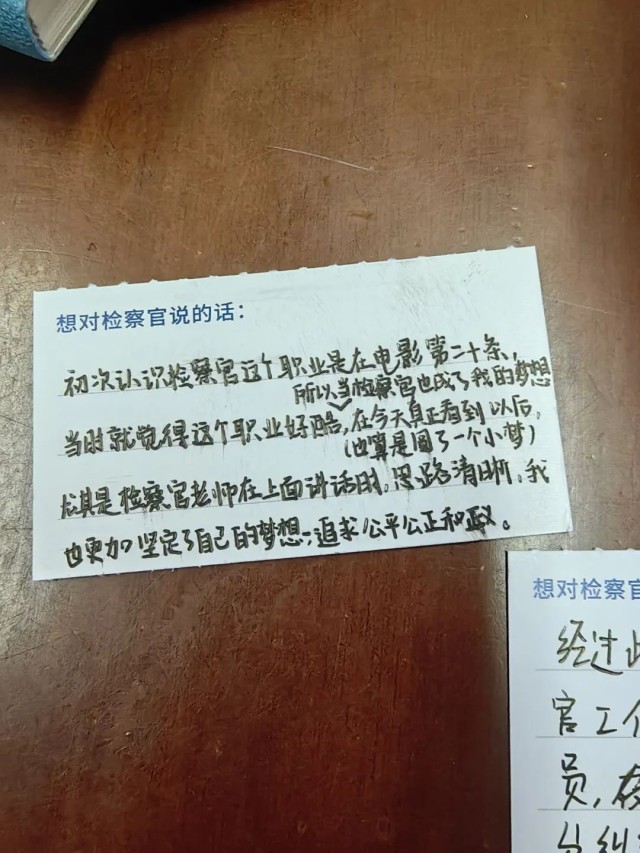 想对检察官说的话：
初次认识检察官这个职业是在电影第二十条，
所以当检察官也成了我的梦想
当时就觉得这个职业好酷，在今天真正看到以后，
（也算是圆了一个小梦）
尤其是检察官老师在上面讲话时，思路清晰，我
也更加坚定了自己的梦想，追求公平公正和正义。
想对检察官
经过
官工作
员，